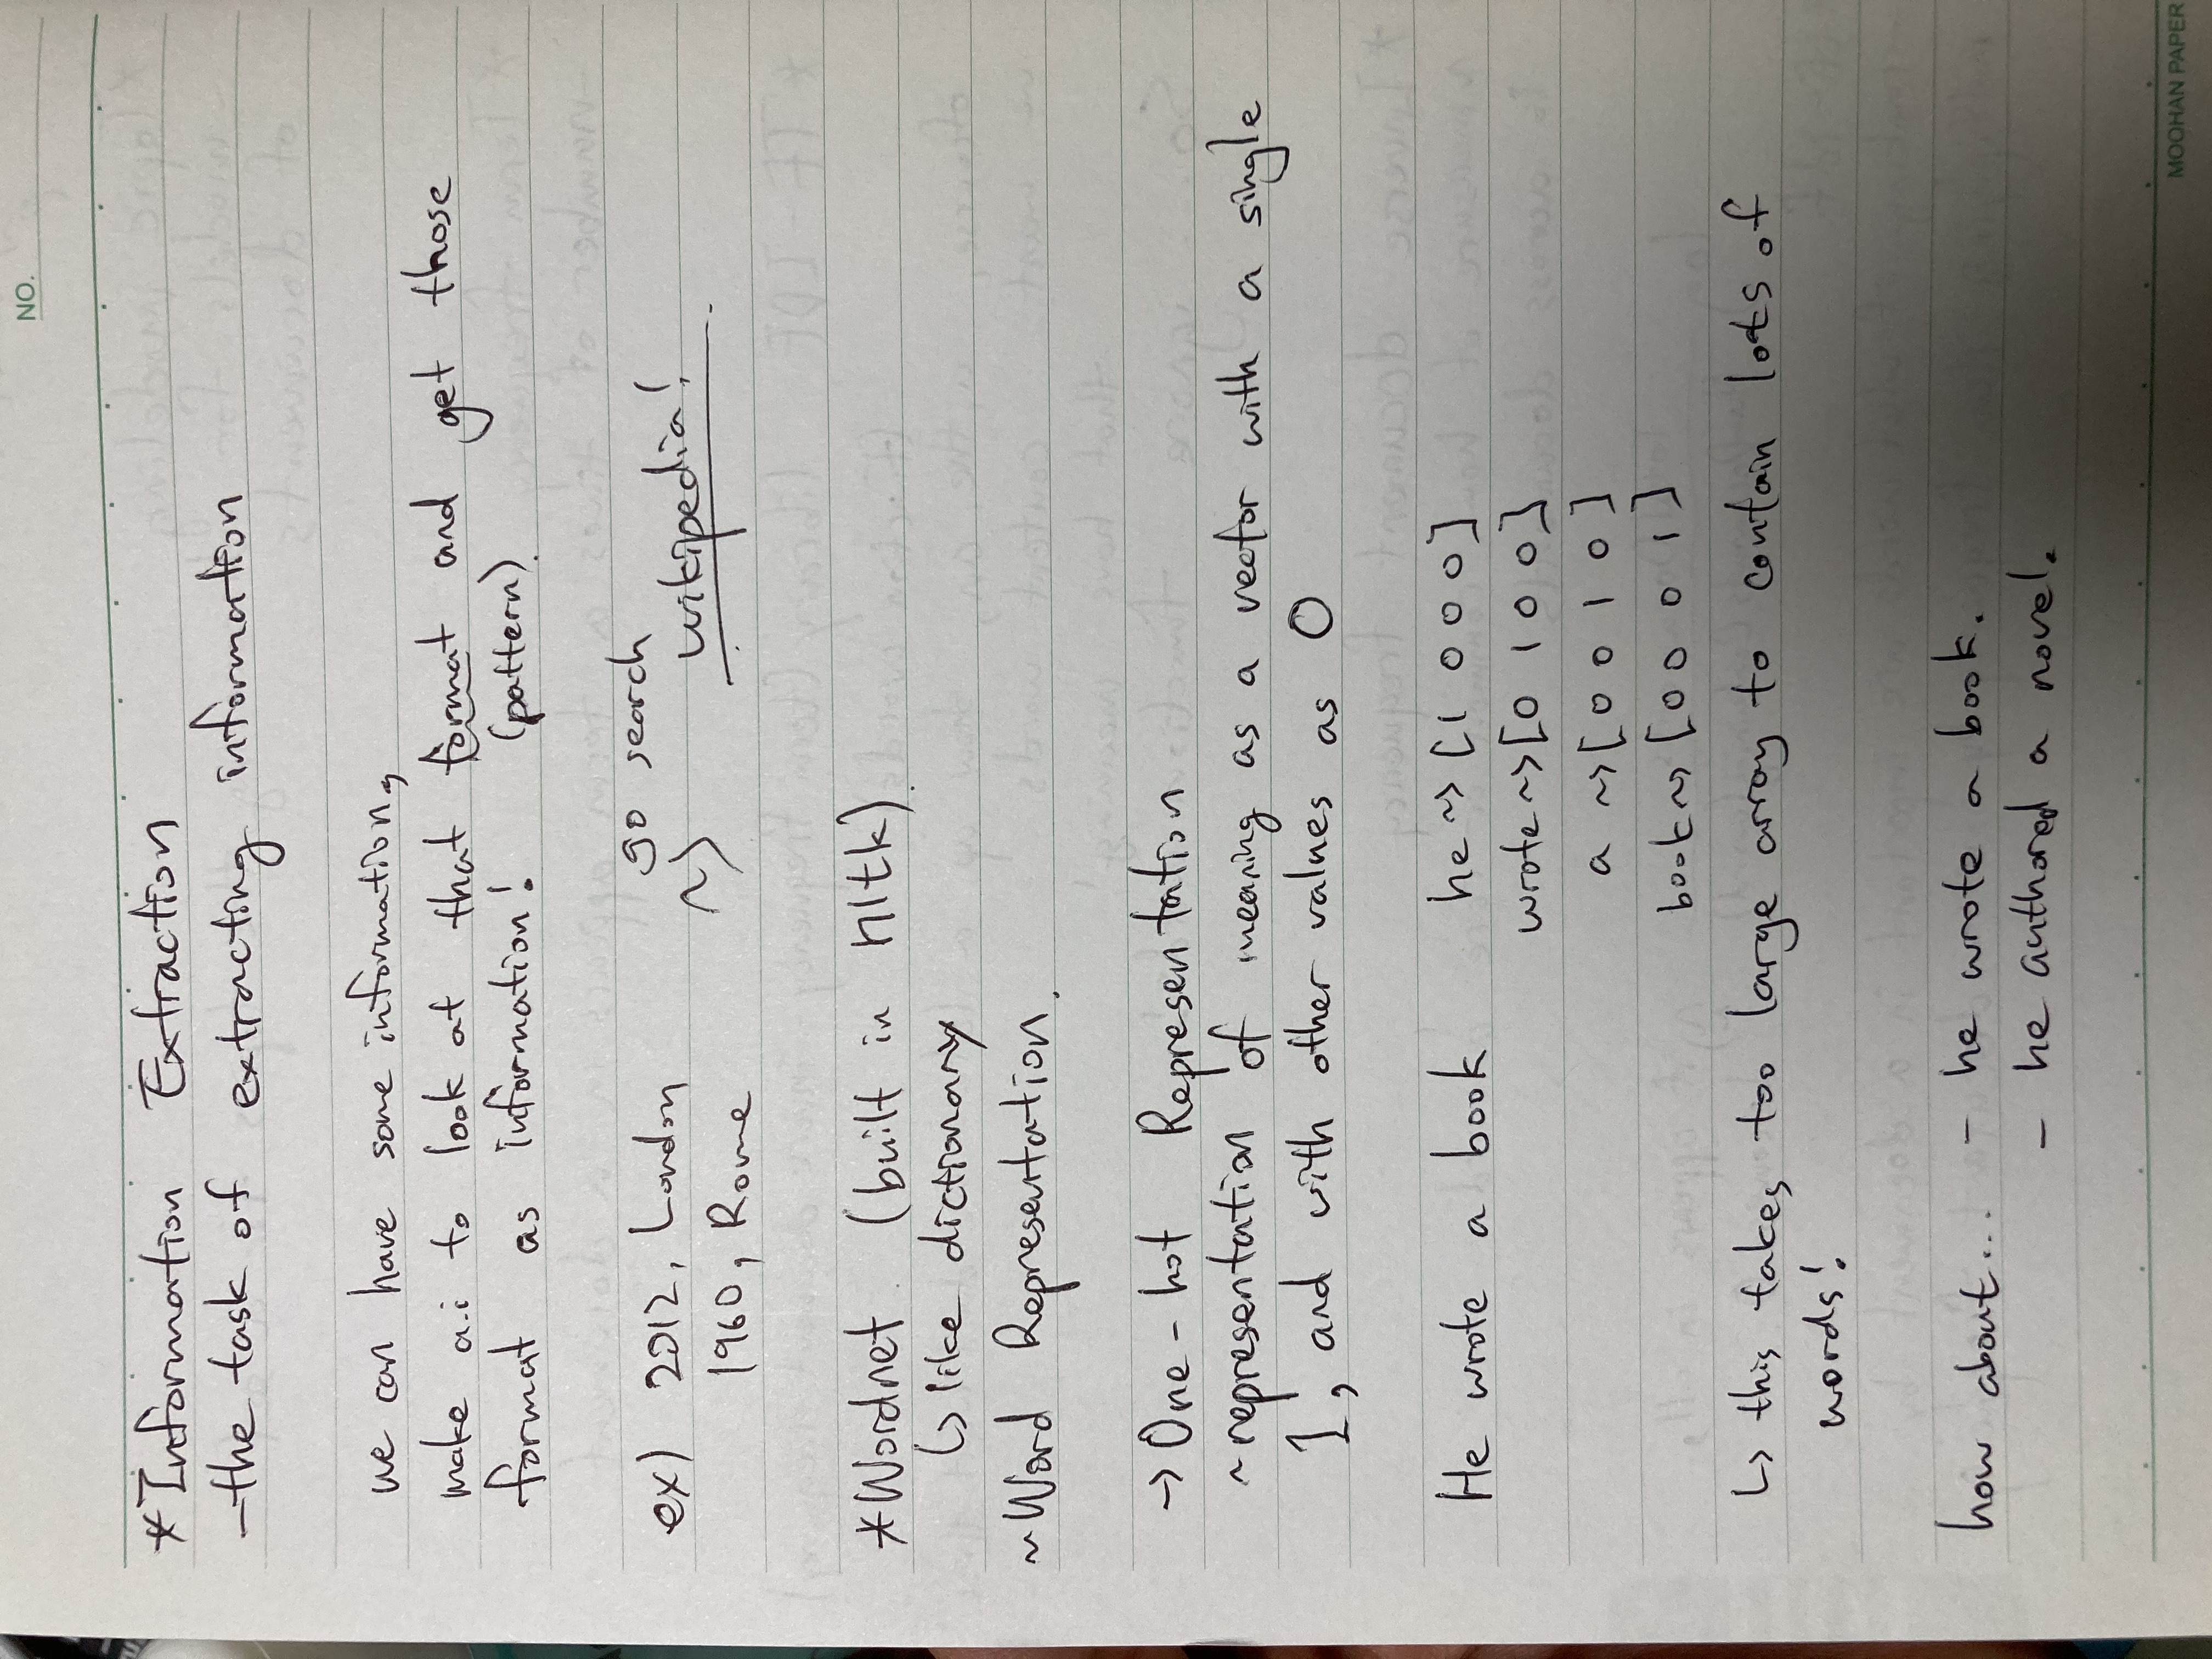 NO.
*Information Extraction
-the task of extracting information
we can have some information,
make a.i to look at that format and get those
format as information! (pattern).
go search
ex) 2012, London ~> wikipedia!
1960, Rome
*Wordnet (built in nltk).
↳ like dictionary
~Word Representation.
→ One-hot Representation
~representation of meaning as a vector with a single
1, and with other values as 0
He wrote a book he ~> [1 0 0 0]
wrote ~> [0 1 0 0]
a ~> [0 0 1 0]
book ~> [0 0 0 1]
↳ this takes too large array to contain lots of
words!
how about... - he wrote a book.
- he authored a novel.
MOOHAN PAPER